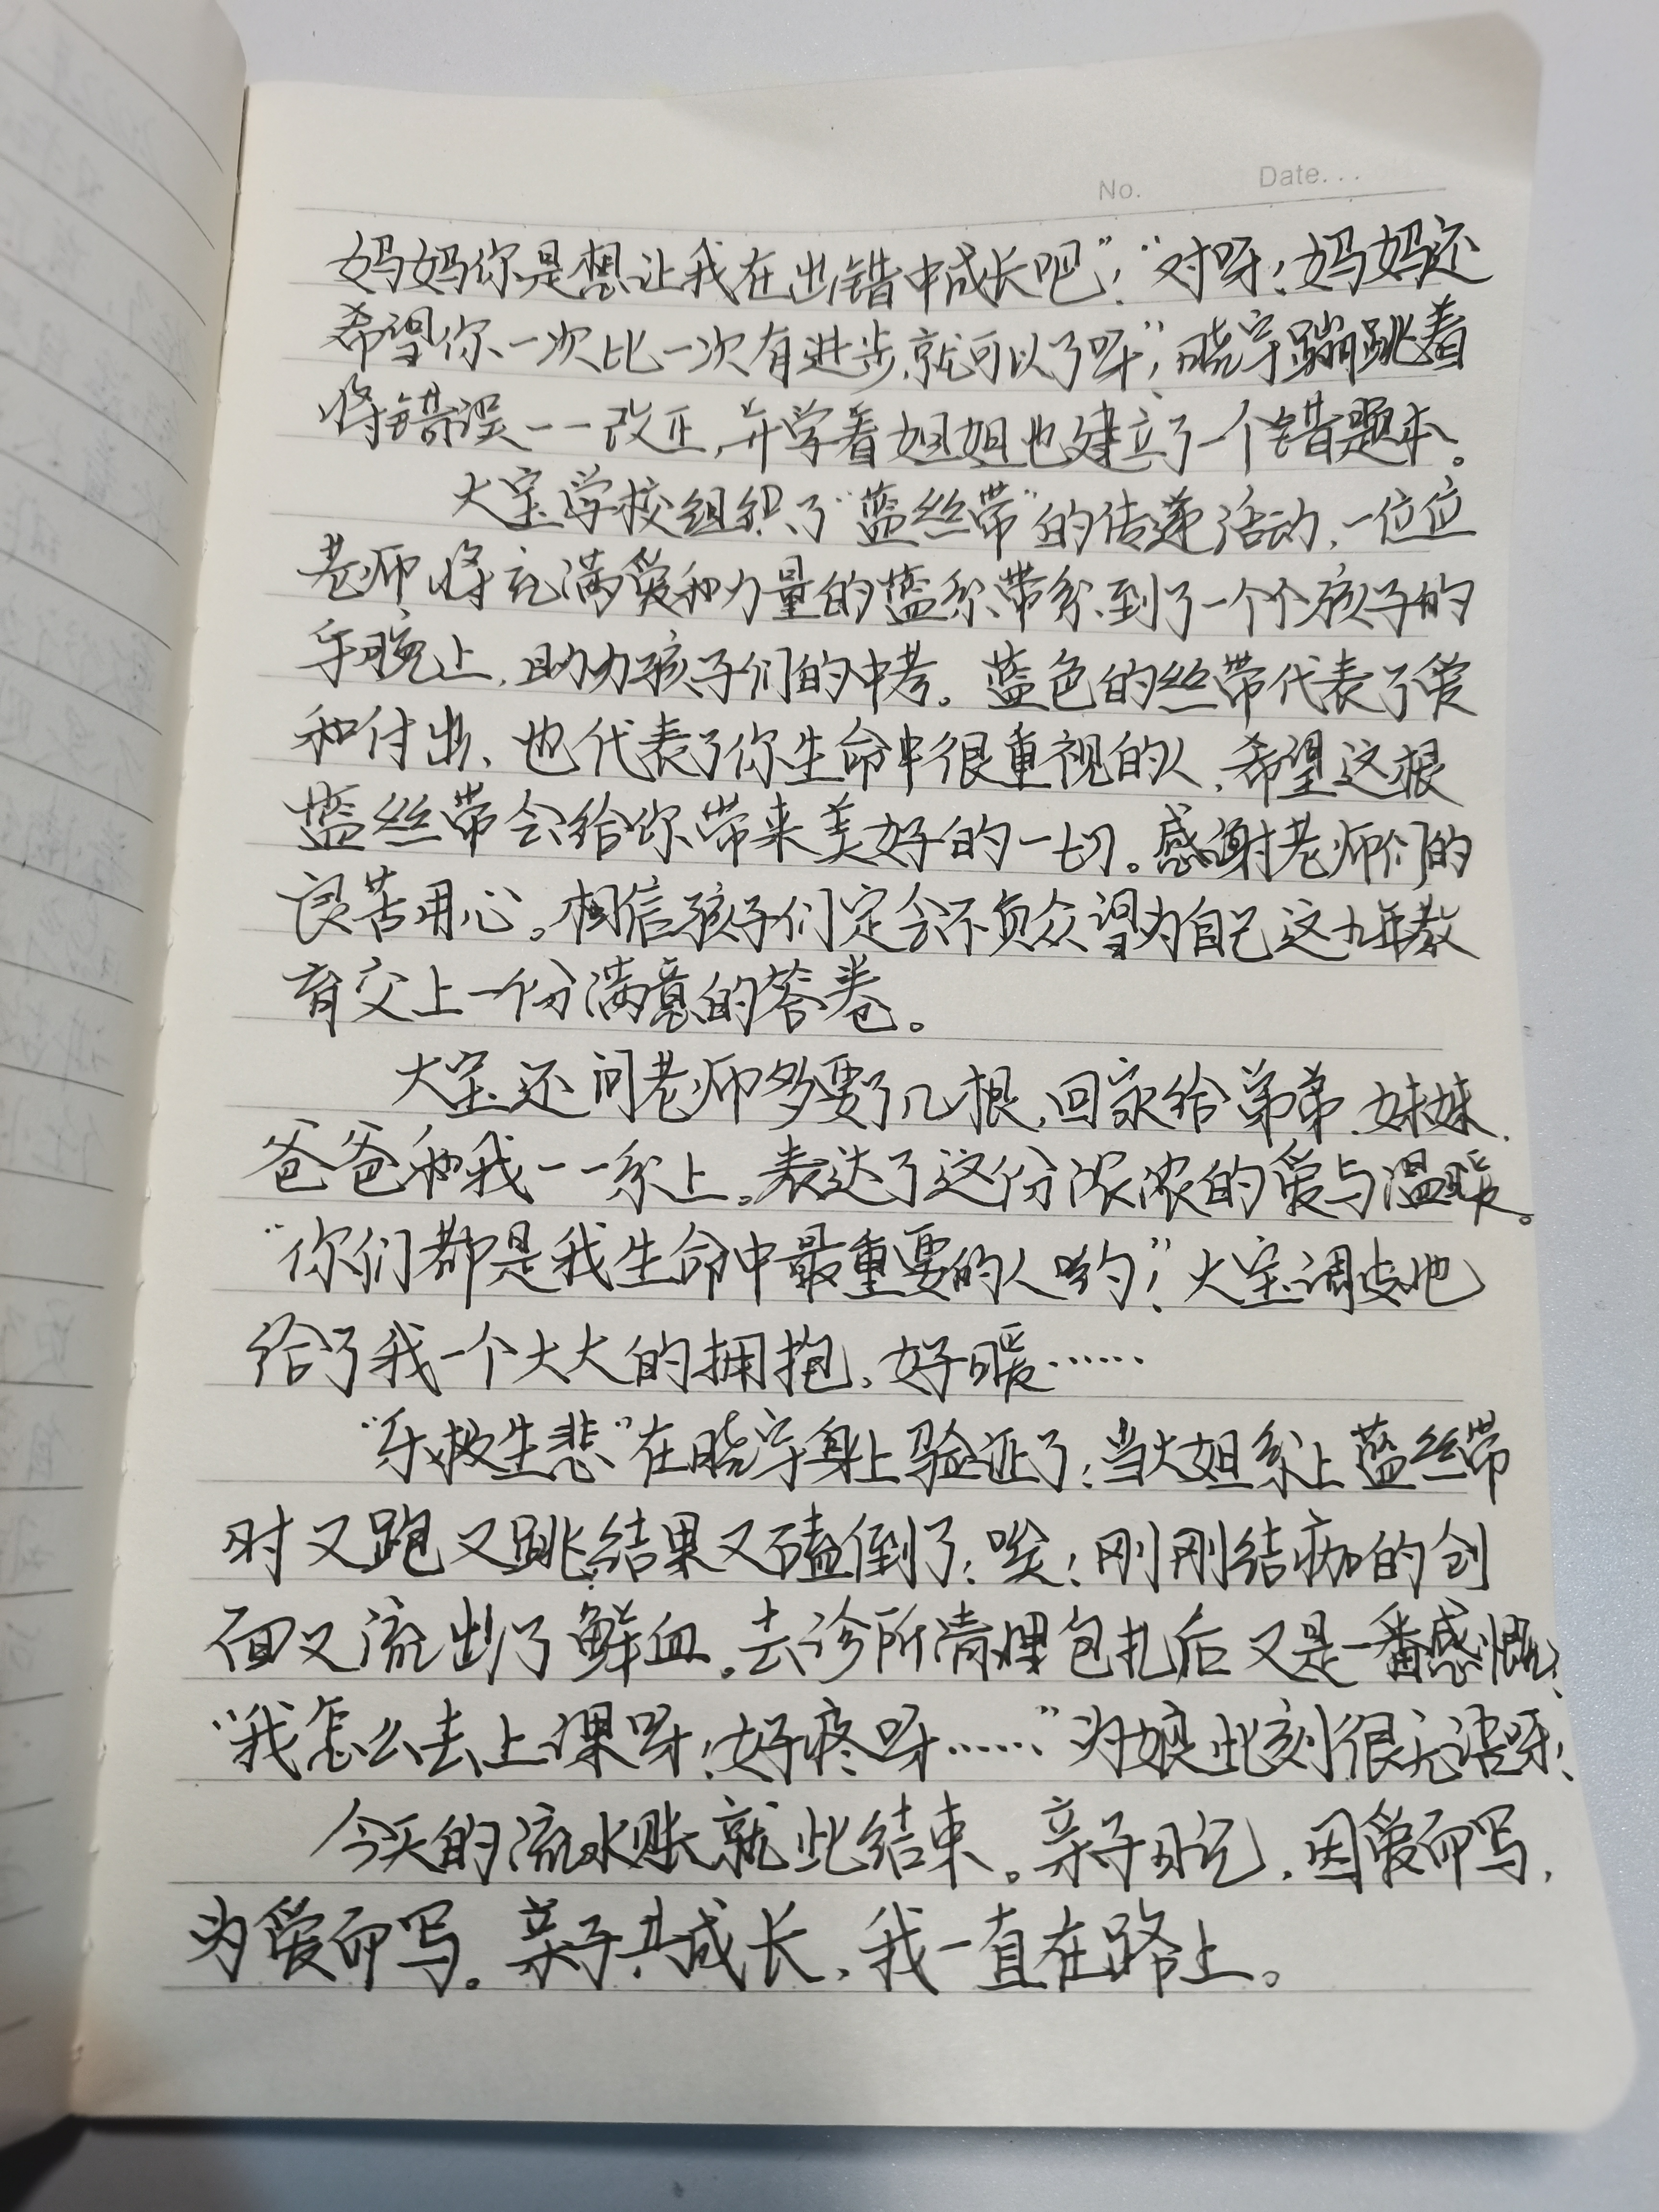 No. Date...
妈妈你是想让我在出错中成长吧"!"对呀!妈妈还
希望你一次比一次有进步,就可以了呀"!晓宇蹦跳着
将错误一一改正,并学着姐姐也建立了一个错题本。
大宝学校组织了"蓝丝带"的传递活动,一位位
老师将充满爱和力量的蓝丝带系到了一个个孩子的
手腕上,助力孩子们的中考。蓝色的丝带代表了爱
和付出、也代表了你生命中很重视的人,希望这根
蓝丝带会给你带来美好的一切。感谢老师们的
良苦用心。相信孩子们定会不负众望为自己这九年教
育交上一份满意的答卷。
大宝还问老师多要了几根,回家给弟弟、妹妹、
爸爸和我一一系上。表达了这份浓浓的爱与温暖。
"你们都是我生命中最重要的人哟"!大宝调皮地
给了我一个大大的拥抱,好暖……
"乐极生悲"在晓宇身上验证了!当大姐系上蓝丝带
时又跑又跳结果又磕倒了!唉!刚刚结痂的创
面又流出了鲜血。去诊所清理包扎后又是一番感慨!
"我怎么去上课呀!好疼呀……"为娘此刻很无语呀!
今天的流水账就此结束。亲子日记,因爱而写,
为爱而写。亲子共成长,我一直在路上。